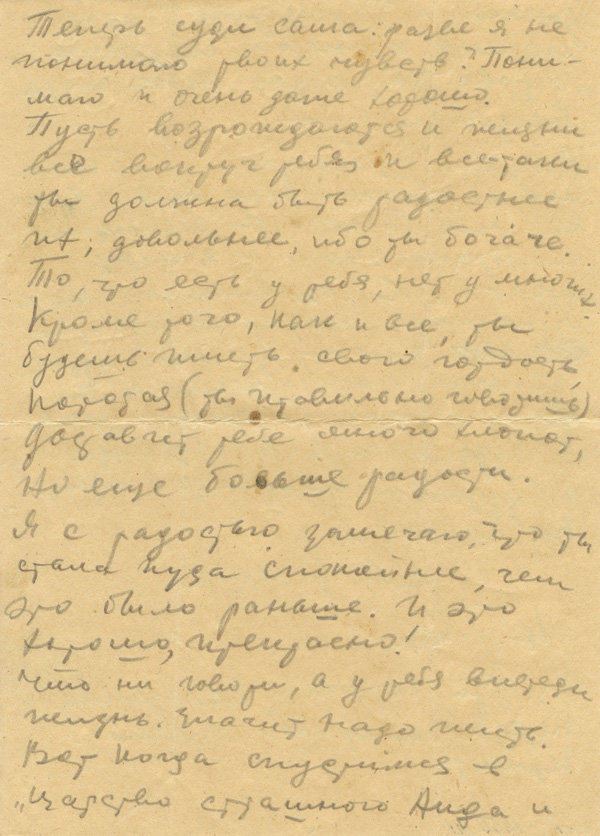 Теперь суди сама: разве я не
понимаю твоих чувств? Пони-
маю и очень даже хорошо.
Пусть возрождаются и жизни
всё вокруг тебя и всё-таки
ты должна быть радостнее
их, довольнее, ибо ты богаче.
То, что есть у тебя, нет у многих.
Кроме того, как и все, ты
будешь иметь свою гордость,
которая (ты правильно говоришь)
доставит тебе много хлопот,
но еще больше радости.
Я с радостью замечаю, что ты
стала куда спокойнее, чем
это было раньше. И это
хорошо, прекрасно!
Что ни говори, а у тебя впереди
жизнь. Значит надо жить.
Вот когда спустимся в
„царство страшного Аида и